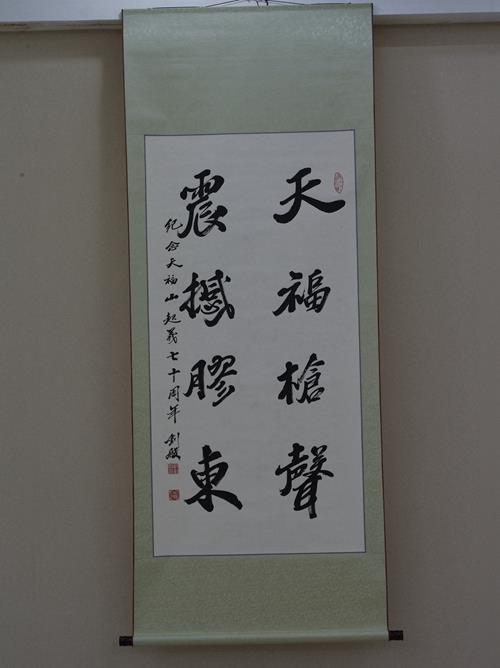 天福槍聲
震撼膠東
紀念天福山起義七十周年